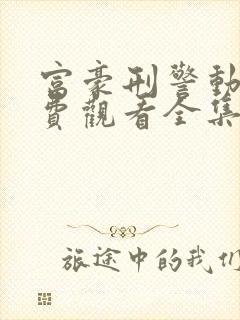 富豪刑警動
費觀看全集
旅途中的我们